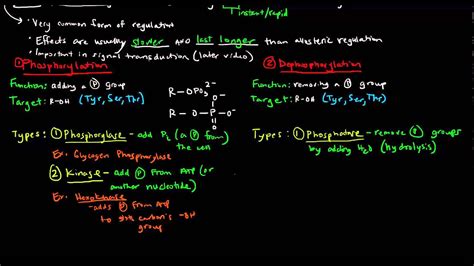 instant/rapid
• Very common form of regulation
• Effects are usually slower AND last longer than allosteric regulation
• Important in signal transduction (later video)
① Phosphorylation
Function: adding a Ⓟ group
Target: R-OH (Tyr, Ser, Thr)
R-OPO₃²⁻
R-O-P-O⁻
O
O⁻
Types: ① Phosphorylase - add Pᵢ (a Ⓟ from the cell
Ex. Glycogen Phosphorylase
② Kinase - add Ⓟ From ATP (or another nucleotide)
Ex. Hexokinase
- adds Ⓟ From ATP
to sixth carbon's -OH
group
② Dephosphorylation
Function: removing a Ⓟ group
Target: R-OH (Tyr, Ser, Thr)
Types: ① Phosphatase - remove Ⓟ groups
by adding H₂O (hydrolysis)